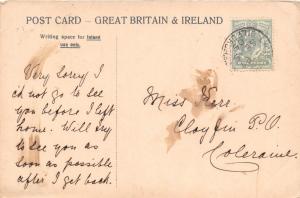 POST CARD – GREAT BRITAIN & IRELAND
Writing space for Inland
use only.
Very sorry I
cd not go to see
you before I left
home. Will try
to see you as
soon as possible
after I get back.
Miss Kerr.
Cloyfin P.O.
Coleraine.